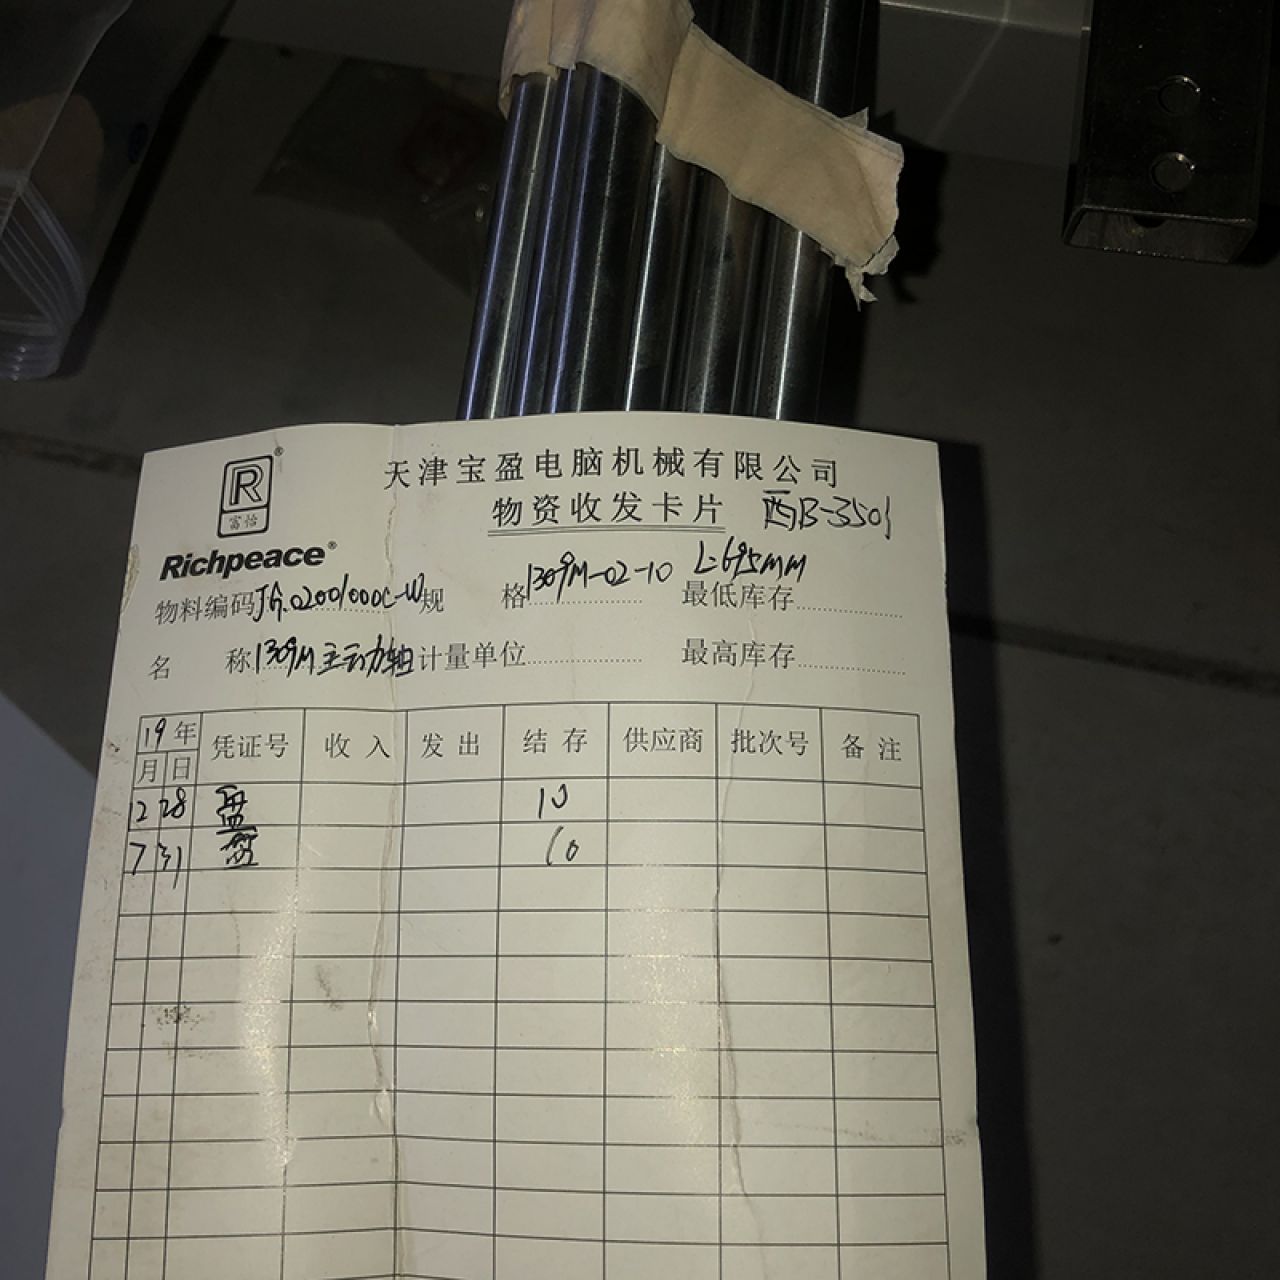 天津宝盈电脑机械有限公司
R®
富怡
物资收发卡片 西B-3501
Richpeace®
1309M-02-10 L=695mm
物料编码JG.02001000C-W 规格 最低库存
名称 1309M主动轴 计量单位 最高库存
19年 凭证号 收入 发出 结存 供应商 批次号 备注
月 日
12 28 盘 10
7 31 盘 10